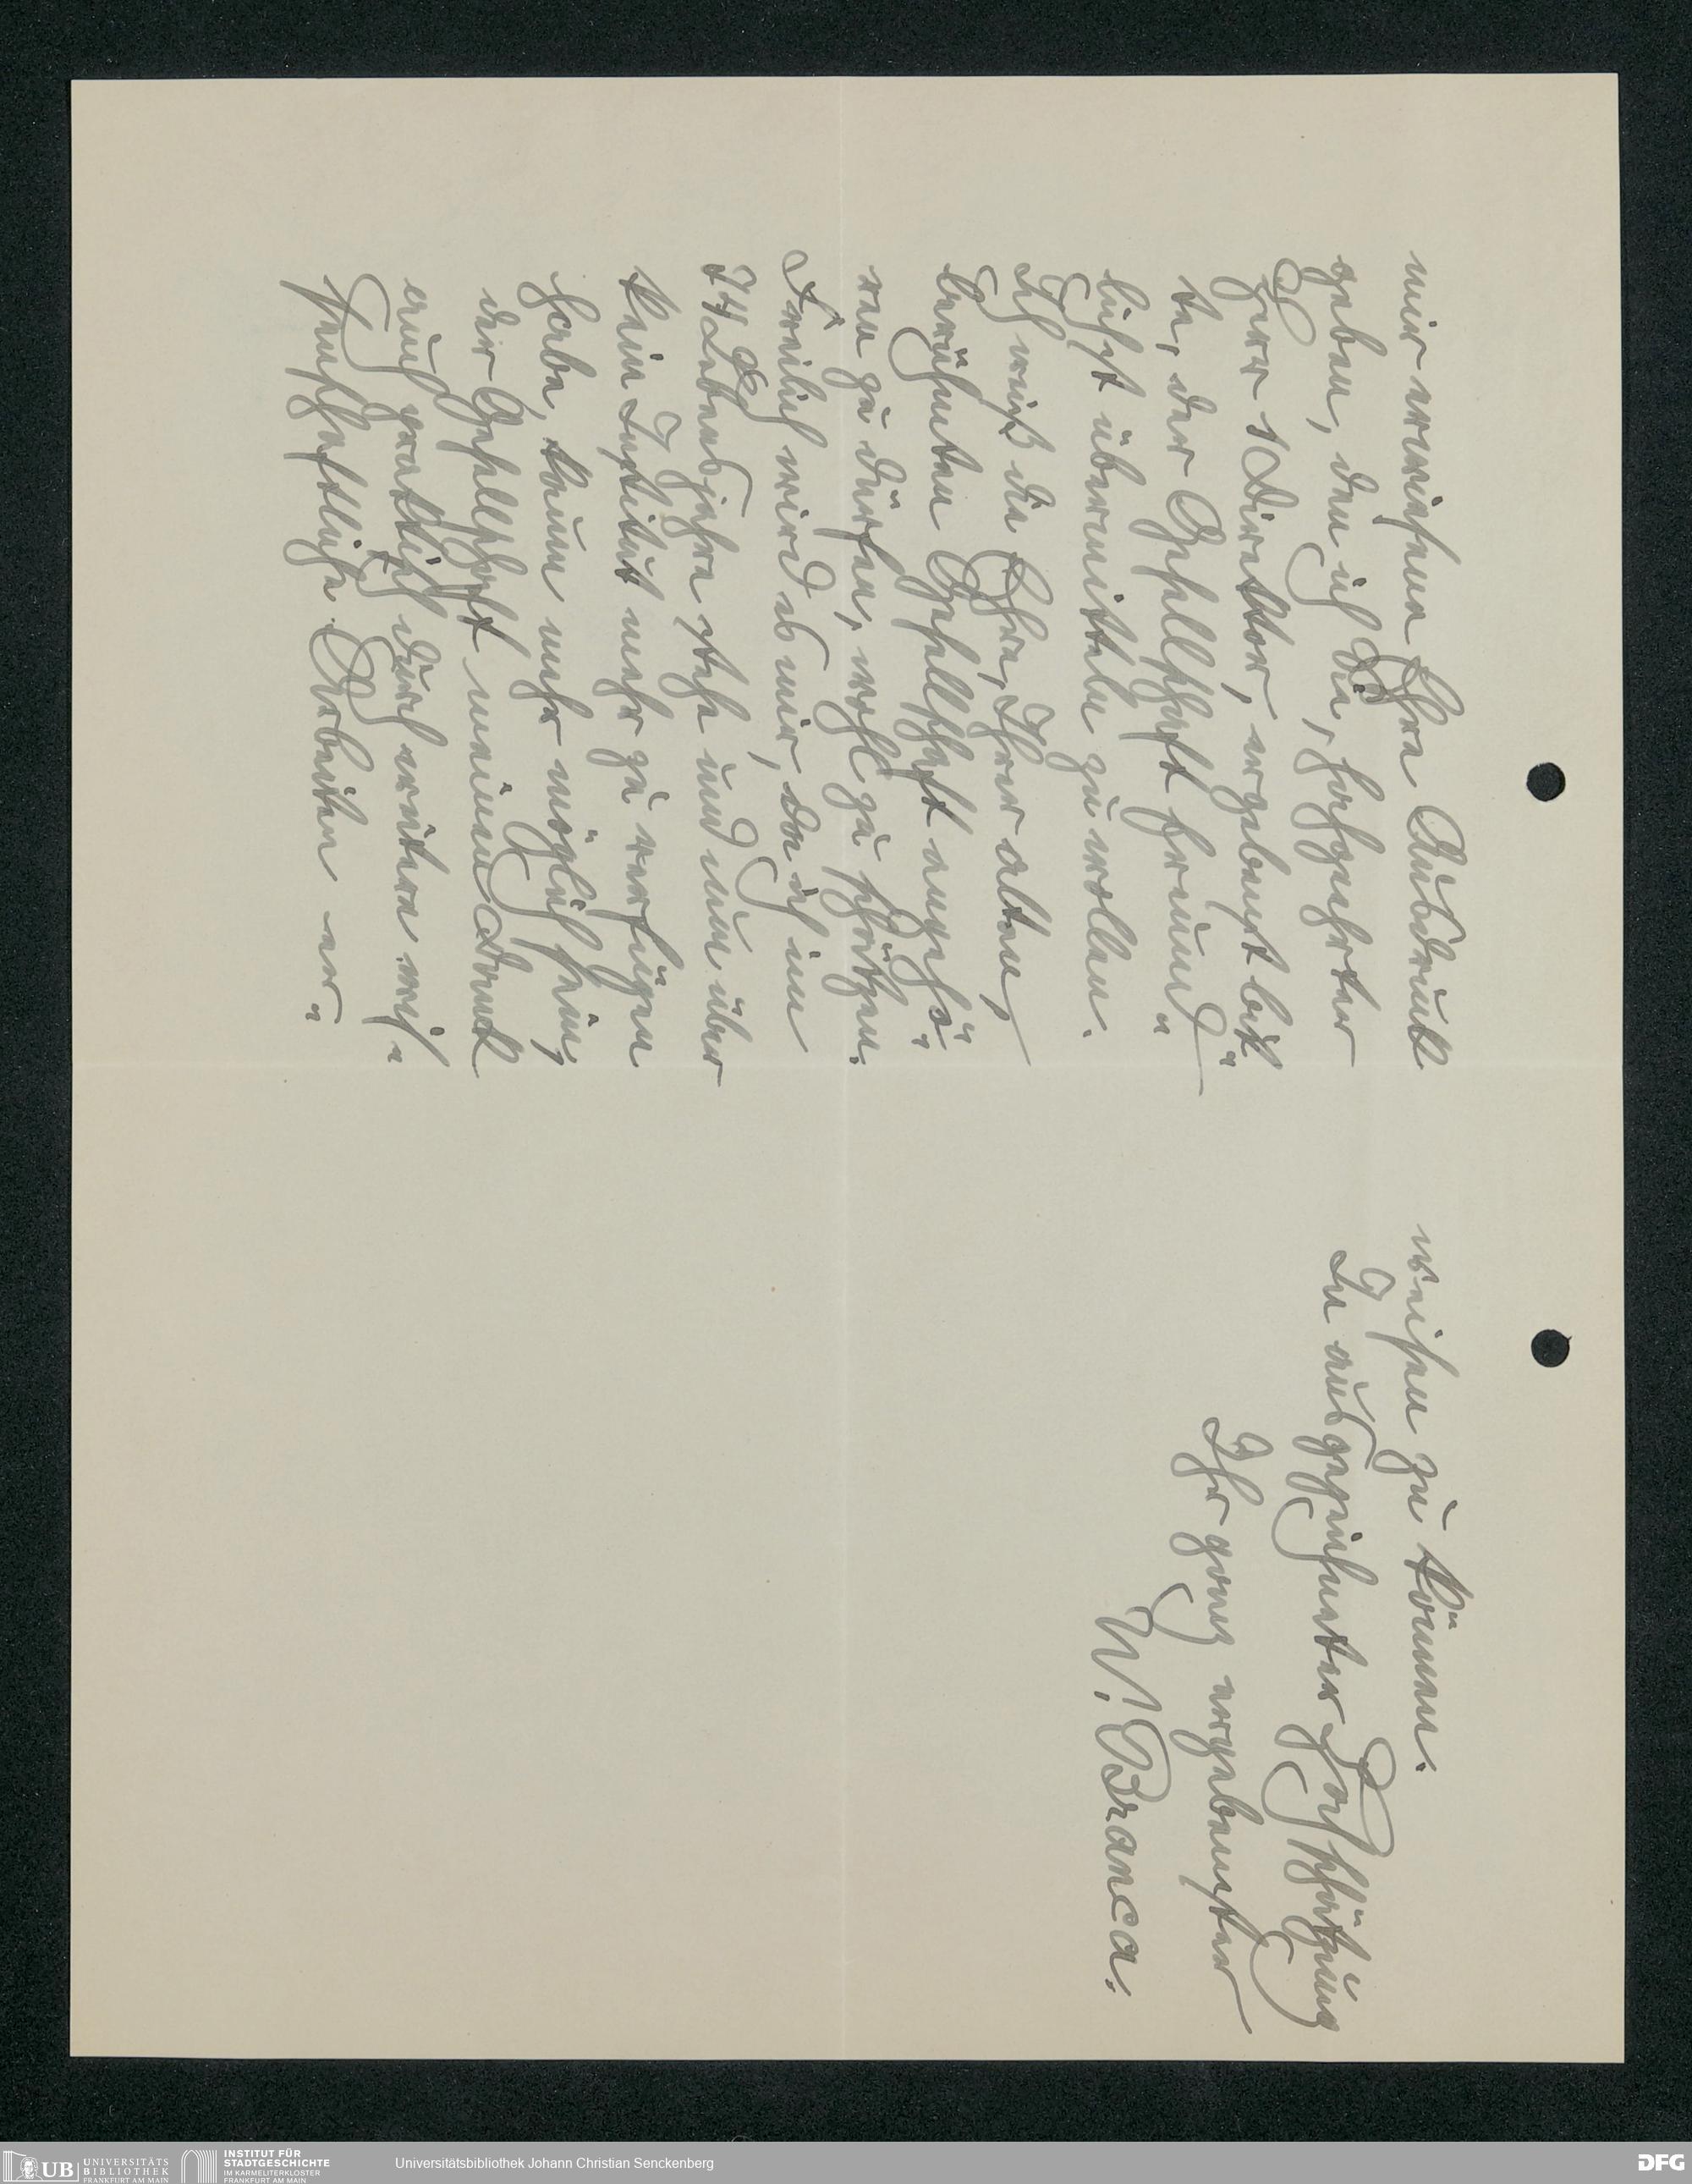 mir erwiesene Ehre Ausdruck
geben, den ich Sie, hochgeehrter
Herr Direktor, ergebenst bit"
te, der Gesellschaft freund"
lichst übermitteln zu wollen.
Ich weiß die Ehre, Ihrer alten,
berühmten Gesellschaft angehö"
ren zu dürfen, wohl zu schätzen.
Freilich wird es mir, da ich im
74 Lebensjahre stehe und nun über
kein Institut mehr zu verfügen
habe, kaum mehr möglich sein,
der Gesellschaft meinen Dank
auch praktisch durch weitere wis"
senschaftliche Arbeiten er"
weisen zu können.
In ausgezeichneter Hochschätzung
Ihr ganz ergebenster
W. Branca.
UB UNIVERSITÄTS
BIBLIOTHEK
FRANKFURT AM MAIN
INSTITUT FÜR
STADTGESCHICHTE
IM KARMELITERKLOSTER
FRANKFURT AM MAIN
Universitätsbibliothek Johann Christian Senckenberg
DFG